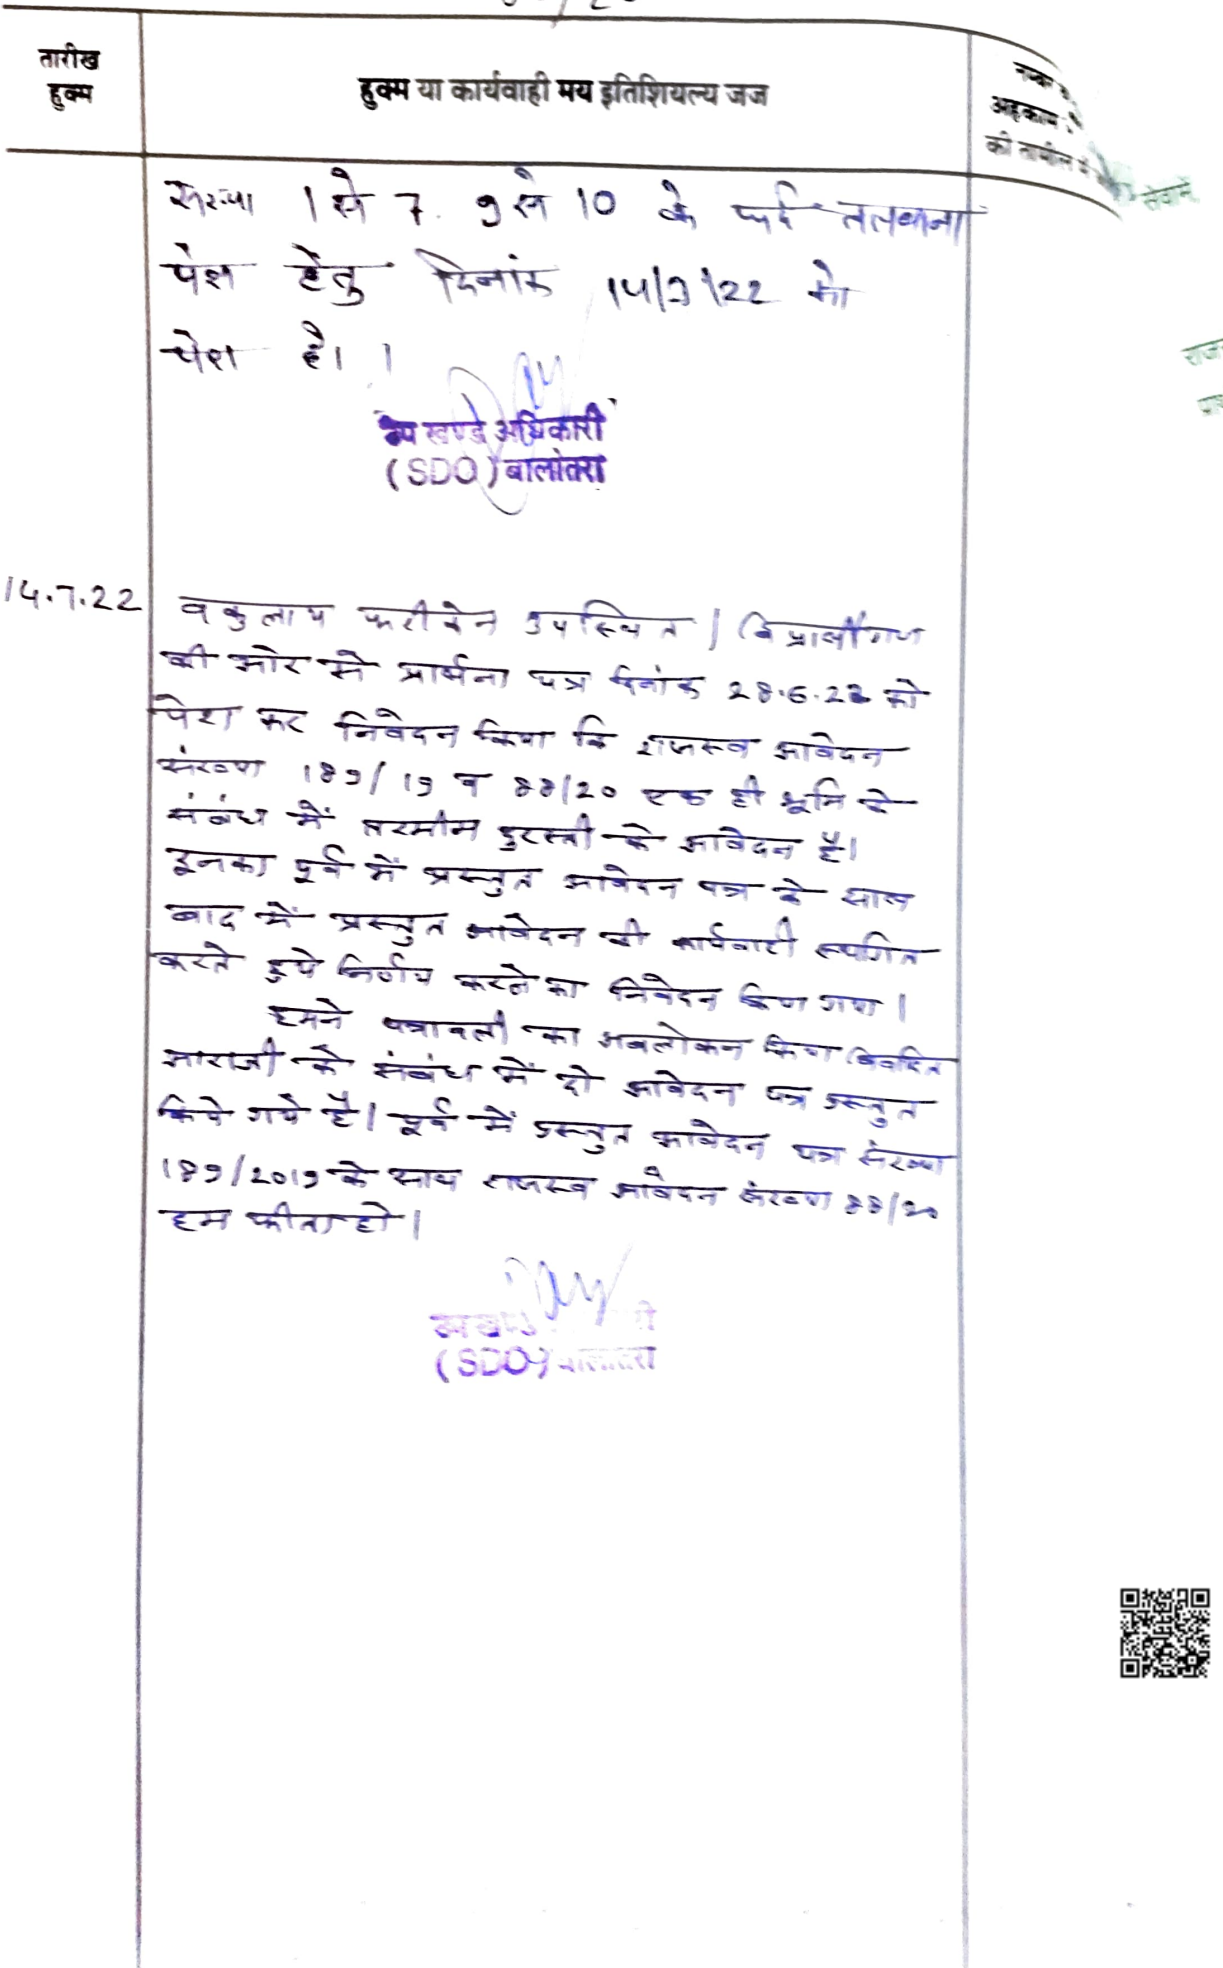 तारीख
हुक्म
हुक्म या कार्यवाही मय इतिशियल्य जज
नम्बर
अहकाम
की तामील
सेवामें
राज
संख्या 1 से 7. 9 से 10 के फर्द तलबाना
पेश हेतु दिनांक 14/7/22 को
पेश है। ।
उप खण्ड अधिकारी
(SDO) बालोतरा
14.7.22
वकुलाय फरीकेन उपस्थित | विप्रार्थीगण
की ओर से प्रार्थना पत्र दिनांक 28.6.22 को
पेश कर निवेदन किया कि राजस्व आवेदन
संख्या 189/19 व 88/20 एक ही भूमि के
संबंध में तरमीम दुरस्ती के आवेदन है।
इनका पूर्व में प्रस्तुत आवेदन पत्र के साथ
बाद में प्रस्तुत आवेदन की कार्यवाही स्थगित
करते हुये निर्णय करने का निवेदन किया गया |
हमने पत्रावली का अवलोकन किया विवादित
आराजी के संबंध में दो आवेदन पत्र प्रस्तुत
किये गये है। पूर्व में प्रस्तुत आवेदन पत्र संख्या
189/2019 के साथ राजस्व आवेदन संख्या 88/20
हम फीता हो |
उप खण्ड
(SDO) बालोतरा